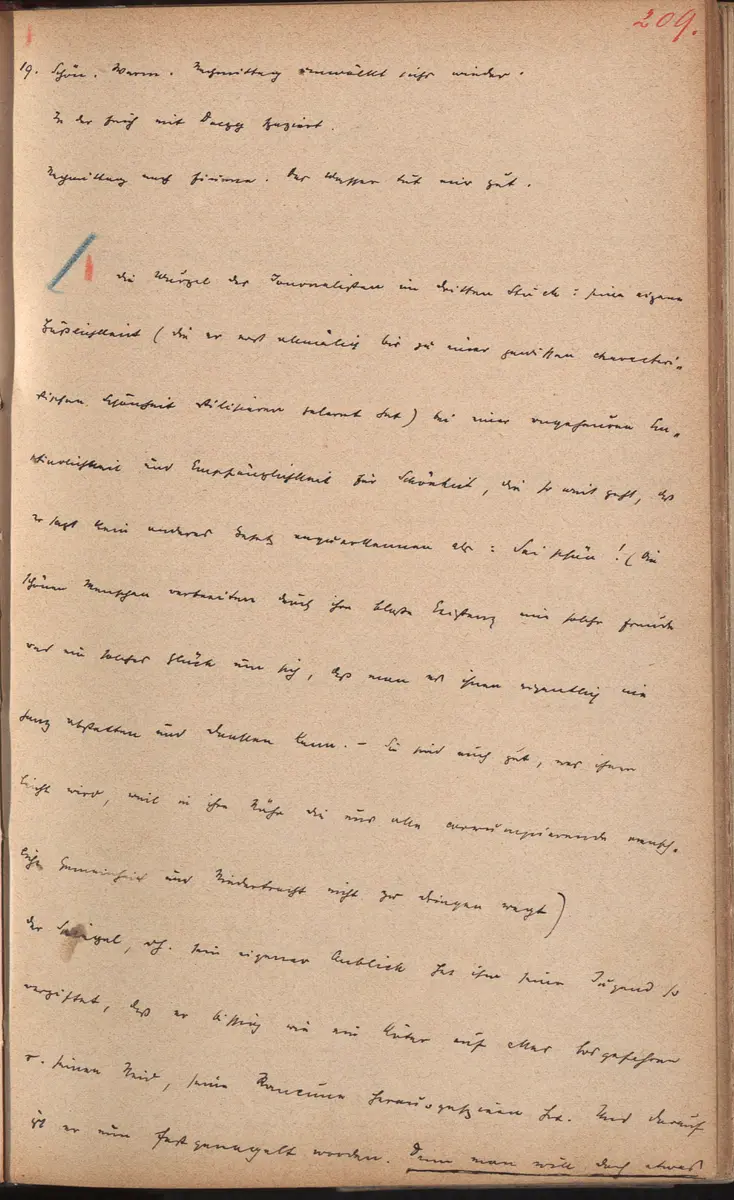 209.
19. Schön. Warm. Nachmittag umwölkt sichs wieder.
In der Früh mit spaziert.
Nachmittag nach Fiume. Das Wasser tut mir gut.
Die Wurzel des Journalisten im dritten Stück: seine eigene
Häßlichkeit (die er erst allmälich bis zu einer gewissen charakteri-
stischen Schönheit stilisieren gelernt hat) bei einer ungeheuren Em-
pfindlichkeit und Empfänglichkeit für Schönheit, die so weit geht, daß
er sagt kein anderes Gesetz anzuerkennen als: Sei schön! (Die
schönen Menschen verbreiten durch ihre bloße Existenz eine solche Freude
und ein solches Glück um sich, daß man es ihnen eigentlich nie
ganz abstatten und danken kann. – Sie sind auch gut, was ihnen
leicht wird, weil in ihre Nähe die uns alle corrumpierende mensch-
liche Gemeinheit und Niedertracht nicht zu dringen wagt)
der Spiegel, dh. sein eigener Anblick hat ihm seine Jugend so
vergiftet, daß er bissig wie ein Köter auf alles losgefahren
u. seinen Neid, seine Rancune herausgespieen hat. Und darauf
ist er nun festgenagelt worden. Denn man will doch etwas